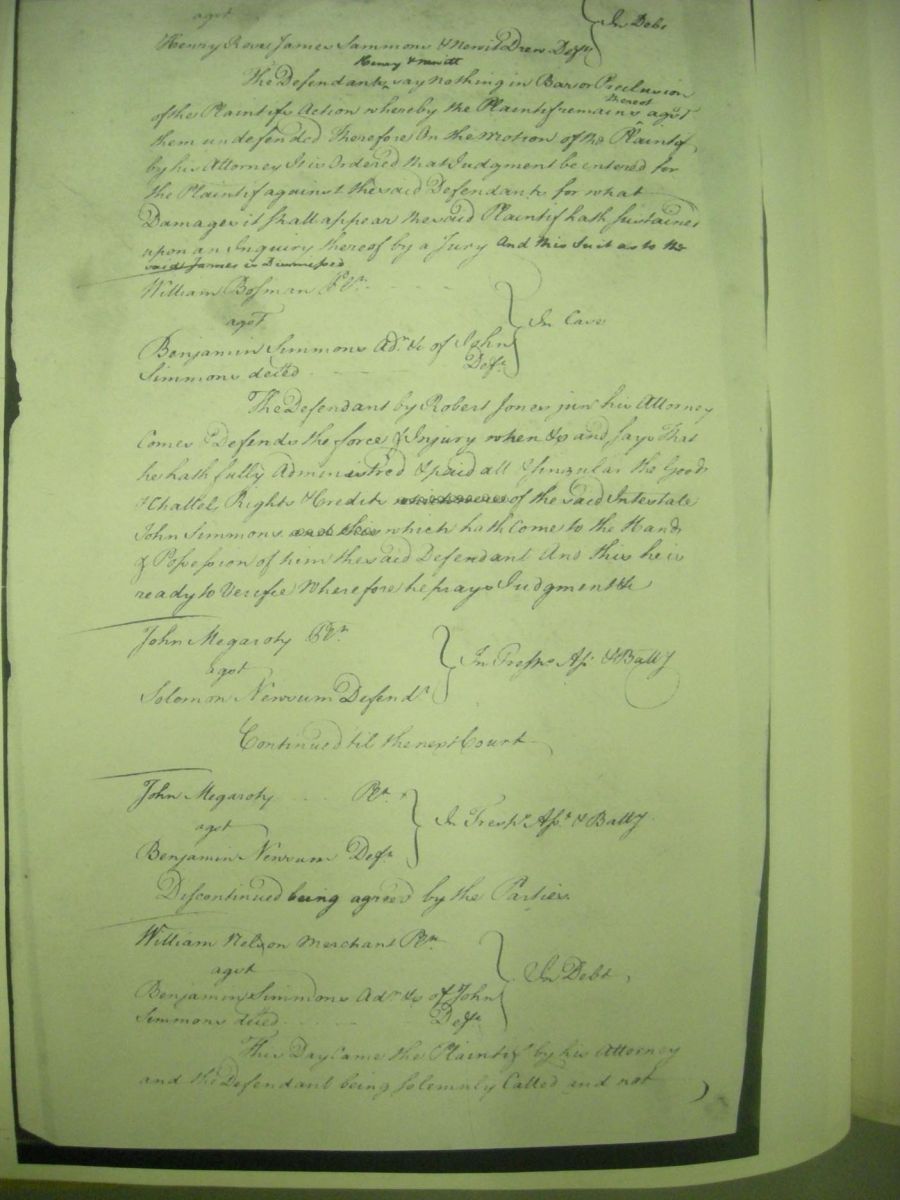 agst
In Debt
Henry Rose James Sammons & Newit Drew Defts
Henry & Newitt
The Defendants say nothing in Bar or Preclusion
thereof
of the Plaintifs Action whereby the Plaintif remains agst
them undefended Therefore On the Motion of the Plaintif
by his Attorney It is Ordered that Judgment be entered for
the Plaintif against the said Defendants for what
Damages it shall appear the said Plaintif hath sustained
upon an Inquiry thereof by a Jury And this Suit as to the
said James is Dismissed
William Bosman Plt.
agst
In Case
Benjamin Simmons Adr. &c of John
Simmons deced Deft.
The Defendant by Robert Jones junr his Attorney
Comes & Defends the force & Injury when &c and says That
he hath fully Administred & paid all & singular the Goods
Chattels Rights & Credits of the said Intestate
John Simmons which hath Come to the Hands
& Possession of him the said Defendant And this he is
ready to Verifie Wherefore he prays Judgment &c
John Megaroty Plt.
agst
In Tresps. Ass. & Batty
Solomon Newsum Defendt
Continued til the next Court
John Megaroty Plt.
agst
In Tresps. Asst. & Batty
Benjamin Newsum Deft.
Discontinued being agreed by the Parties.
William Nelson Merchant Plt.
agst
In Debt
Benjamin Simmons Adr. &c of John
Simmons deced Deft.
This Day Came the Plaintif by his Attorney
and the Defendant being solemnly Called and not